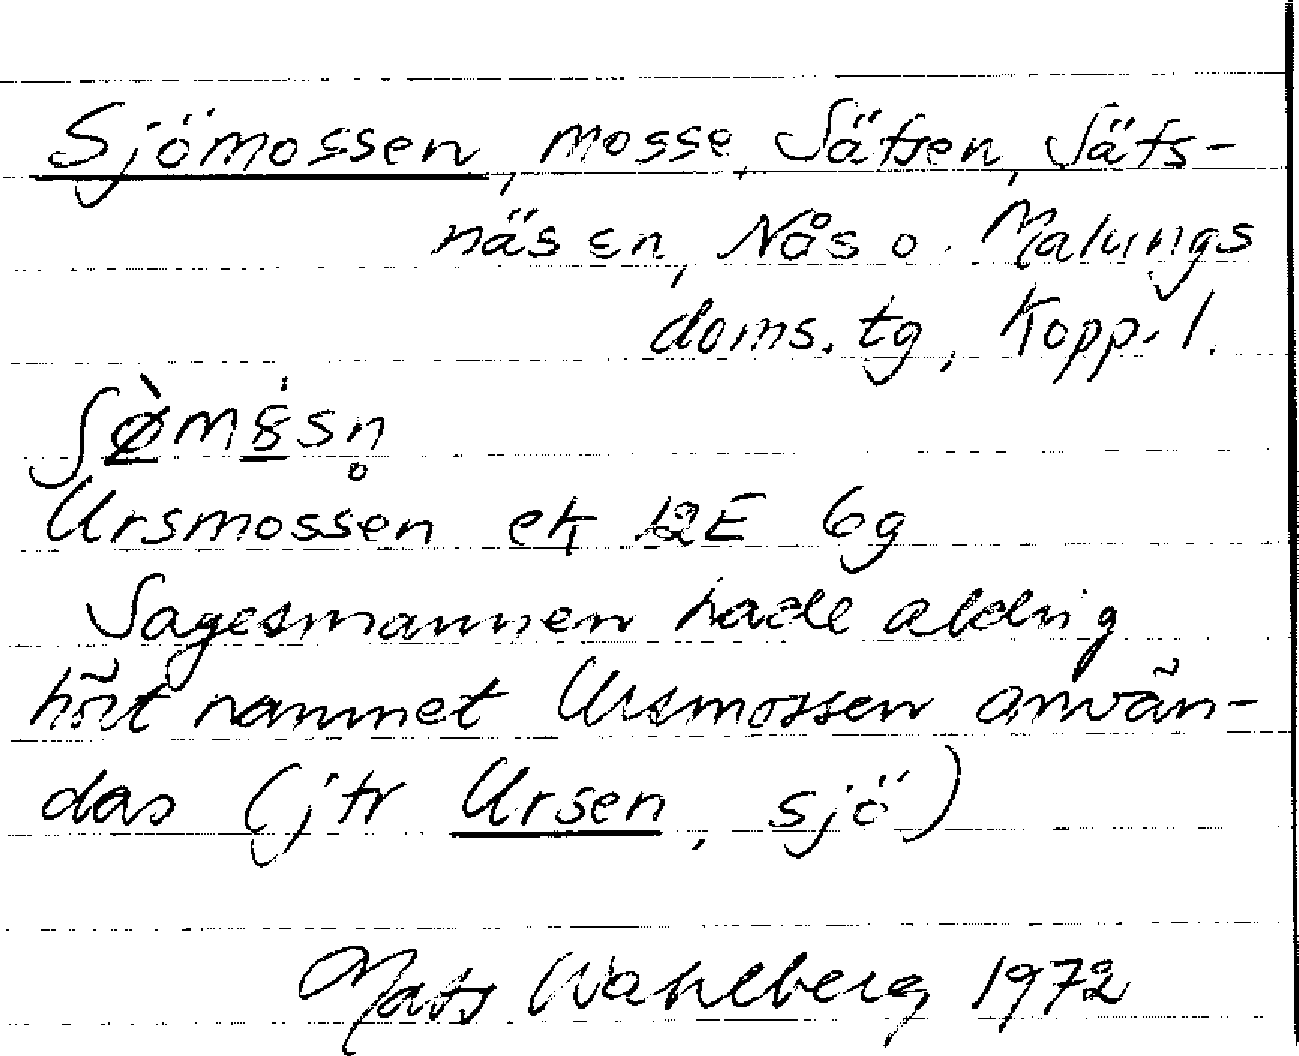 Sjömossen, mosse, Sätsen, Säfs-
näsen, Nås o. Malungs
doms. tg, Kopp. l.
Ursmossen ek 12E 6g
Sagesmannen hade aldrig
hört namnet Ursmossen använ-
das (jtr Ursen, sjö)
Mats Wahlberg 1972